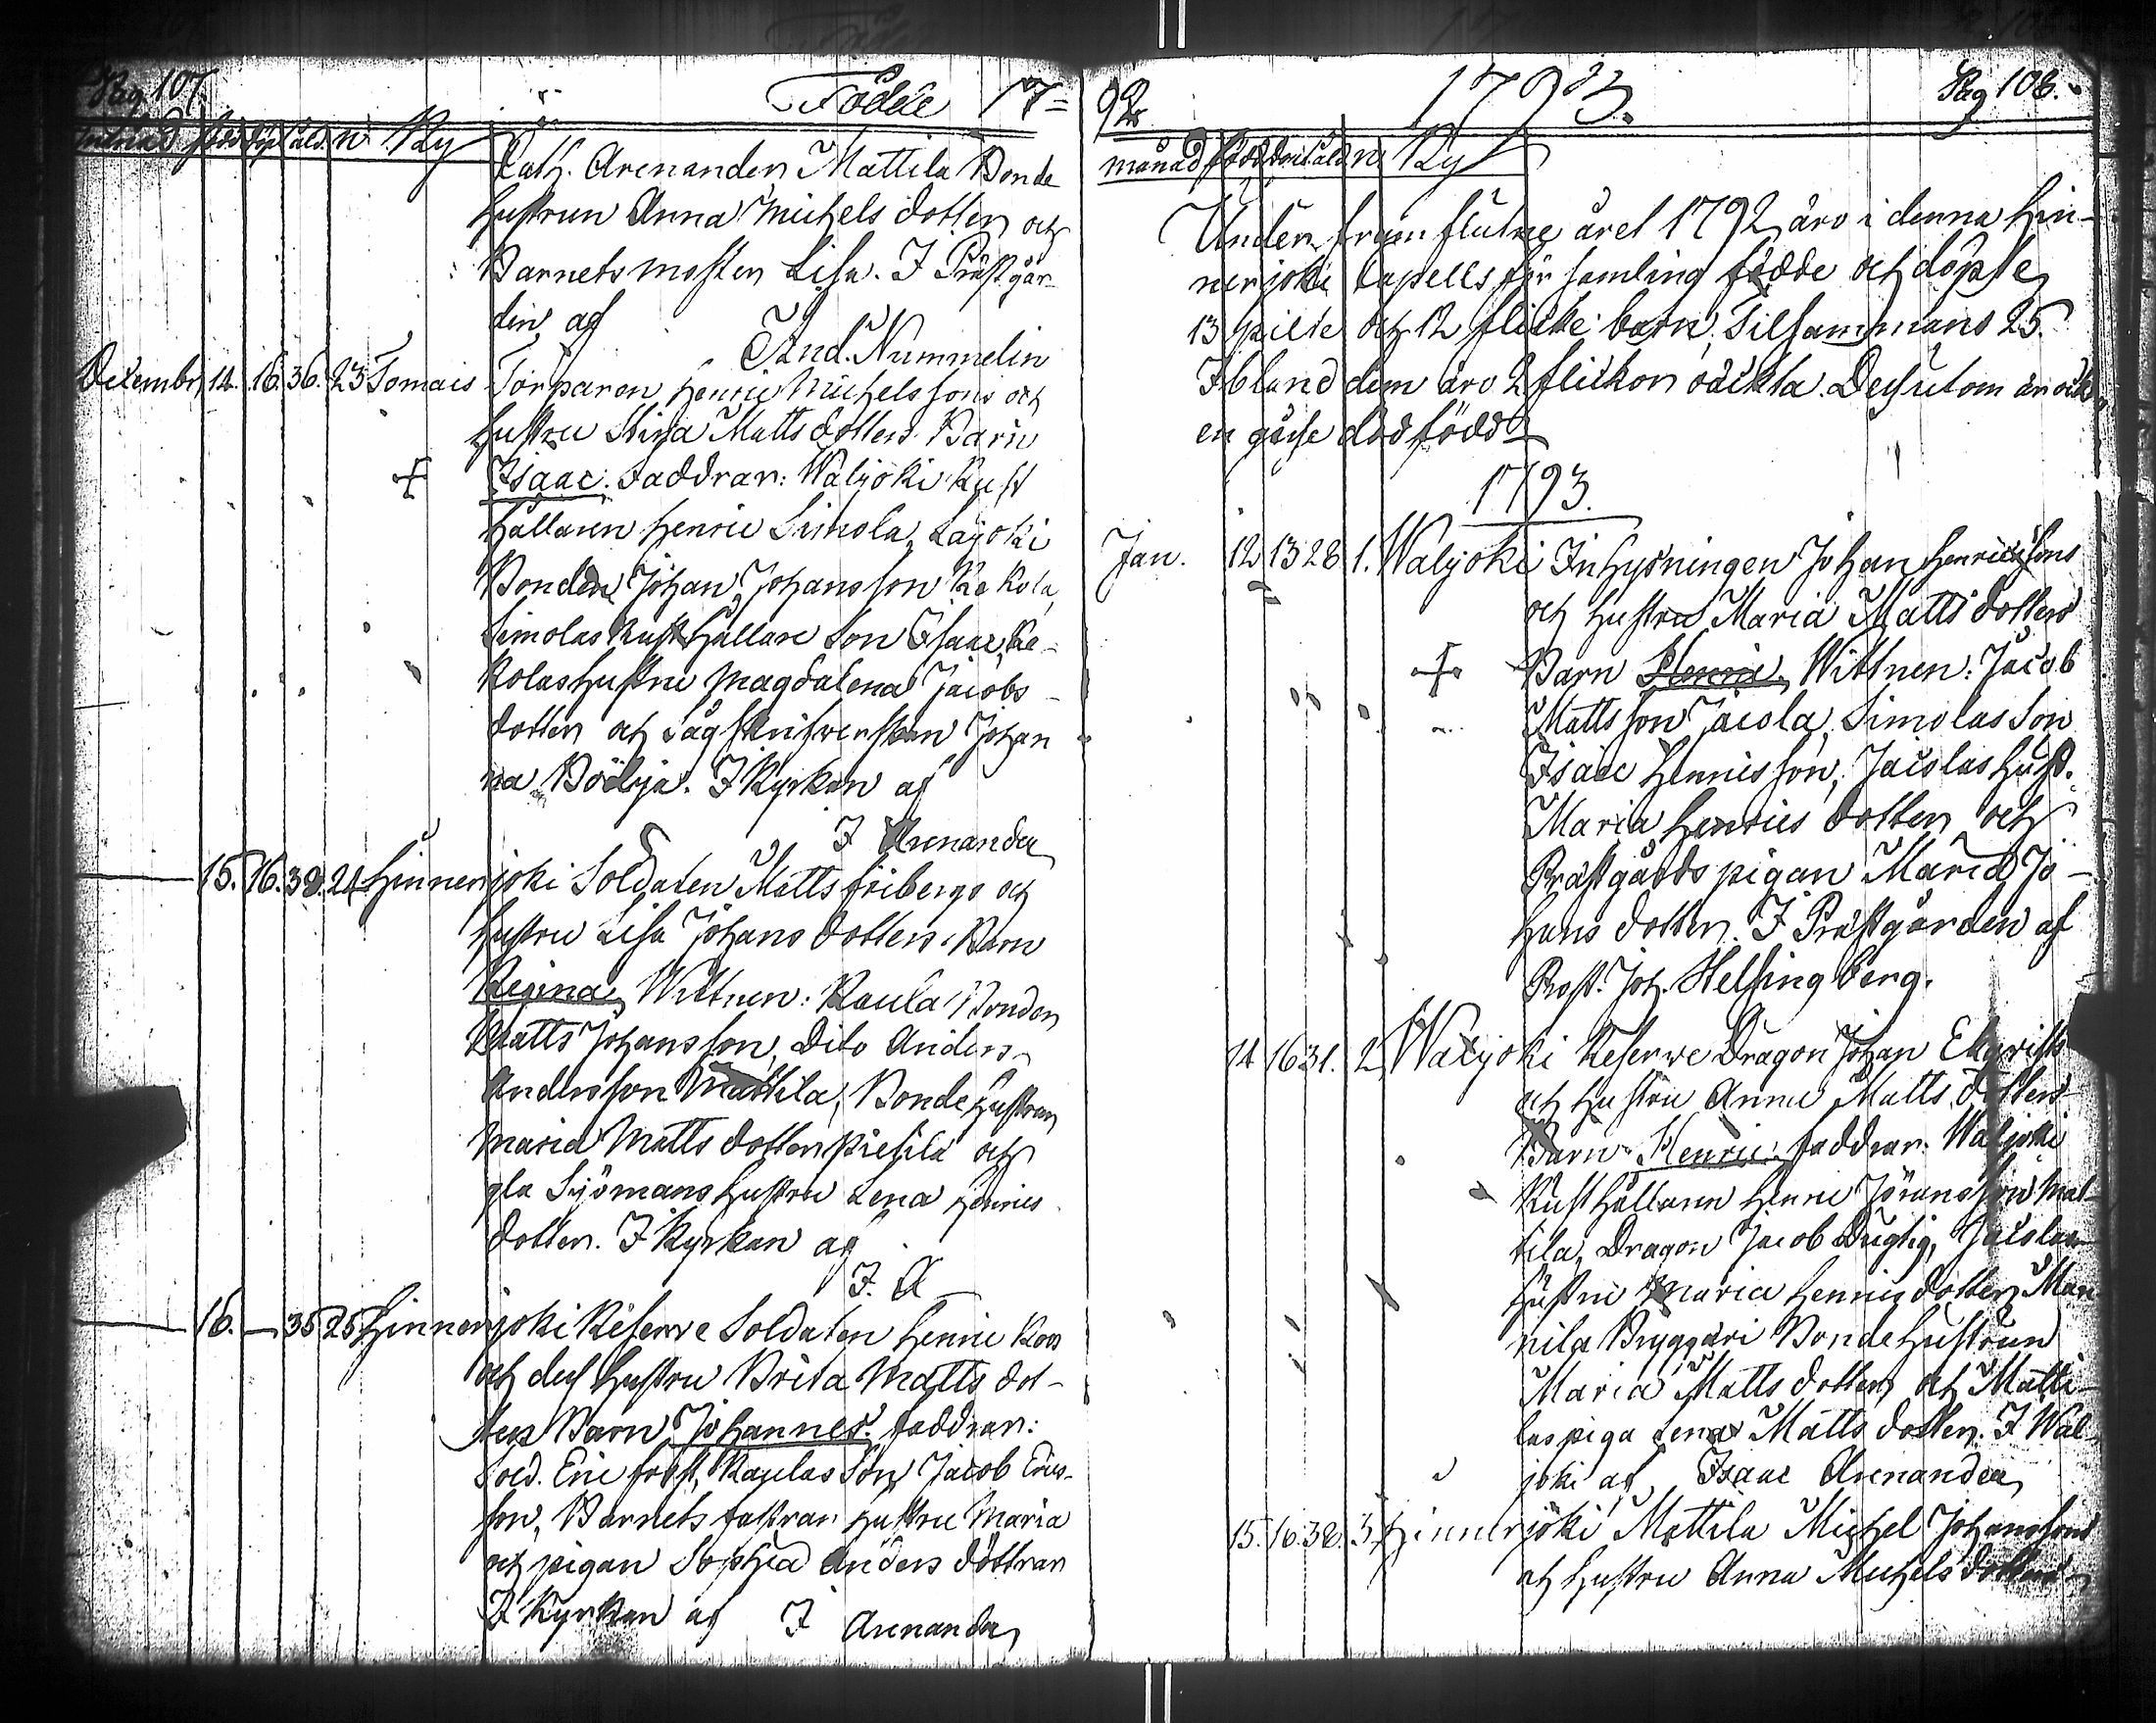 Pag 107.
Födde 17=
månad född döpt åld. n Ry
Cath. Arenander, Mattila Bonde
hustrun Anna Michels dotter och
Barnets moster Lisa. I Prästgår-
den af
And. Nummelin
Decembr 14. 16. 36. 23 Tomais Torparen Henric Michelssons och
hustru Stina Matts dotters Barn
Isaac. Faddrar: Waljoki Rust
hållaren Henric Simola, Lajoki
Bonden Johan Johansson Kekola,
Simolas Rusthållare Son Isaac, Ke-
kolas hustru Magdalena Jacobs
dotter och Johan
na Böelja. I Kyrkan af
I Arenander
15. 16. 38. 24 Hinnerjoki Soldaten Matts Fribergs och
hustru Lisa Johans dotters Barn
Regina, Wittnen: Kaula Bonden
Matts Johansson, Dito Anders
Andersson Mattila, Bonde hustrun
Maria Matts dotter Piesila och
gla Sjömans hustru Lena Henrics
dotter. I Kyrkan af
I. A
16. — 35 25 Hinnerjoki Reserve Soldaten Henric Koos
och dess hustru Brita Matts dot-
ters Barn Johannes. faddrar:
Sold. Eric frost, Kaulas Son Jacob Erics-
son, Barnets fastrar hustru Maria
och pigan Sophia Anders döttrar
I Kyrkan af I Arenander
92. 1793. Pag 108.
månad född döpt åld n Ry
Under framflutne året 1792 äro i denna Hin-
nerjoki Capells församling födde och döpte
13 pilte och 12 flicke barn, Tilsammans 25.
Ibland dem äro 2 flickor oäckta. Dessutom är ock
en gåsse dödfödd
1793.
Jan. 12 13 28 1. Waljoki Inhysningen Johan Henricssons
och hustru Maria Matts dotters
Barn Henric, Wittnen: Jacob
Mattsson Jacola, Simolas Son
Isaac Henricsson, Jacolas hust.
Maria Henrics dotter och
Prästgårds pigan Maria Jo-
hans dotter. I Prästgården af
Prost. Joh. Helsingberg.
14 16 31. 2. Waljoki Reserve Dragon Johan Ekqvists
och hustru Anna Matts dotters
Barn Henric. faddrar: Waljoki
Rusthållaren Henric Jöransson Mat-
tila, Dragon Jacob Dugtig, Jacolas
hustru Maria Henrics dotter, Man
nila Bryggari Bonde hustrun
Maria Matts dotter, och Matti-
las piga Lena Matts dotter. I Wal-
joki af Isaac Arenander
15. 16. 38. 3. Hinnerjoki Mattila Michel Johanssons
och hustru Anna Michels dotters